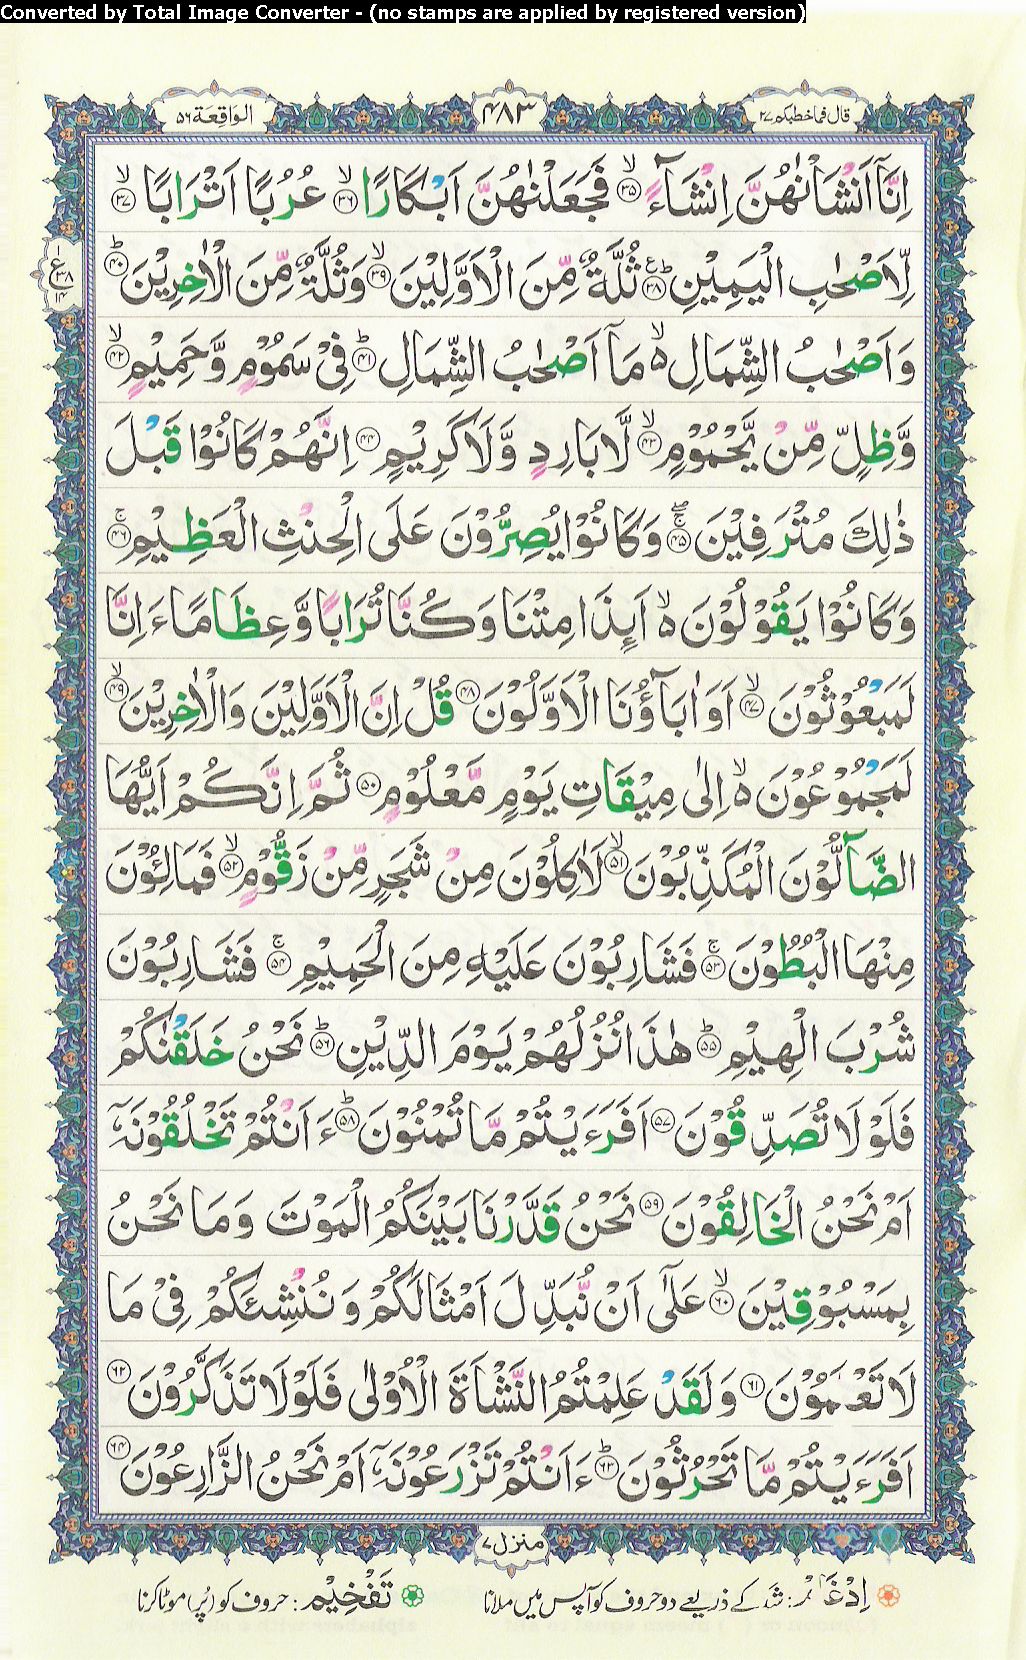 Converted by Total Image Converter - (no stamps are applied by registered version)
قال فما خطبكم ۲۷
۴۸۳
الواقعة ۵۶
اِنَّاۤ اَنْشَاْنٰهُنَّ اِنْشَآءً ۙ﴿۳۵﴾ فَجَعَلْنٰهُنَّ اَبْكَارًا ۙ﴿۳۶﴾ عُرُبًا اَتْرَابًا ۙ﴿۳۷﴾
لِّاَصْحٰبِ الْيَمِيْنِ ؕ﴿۳۸﴾ ثُلَّةٌ مِّنَ الْاَوَّلِيْنَ ۙ﴿۳۹﴾ وَثُلَّةٌ مِّنَ الْاٰخِرِيْنَ ؕ﴿۴۰﴾
ع ۱ ۳۸ ۱۴
وَاَصْحٰبُ الشِّمَالِ ۙ۵ مَاۤ اَصْحٰبُ الشِّمَالِ ؕ﴿۴۱﴾ فِیْ سَمُوْمٍ وَّحَمِيْمٍ ۙ﴿۴۲﴾
وَّظِلٍّ مِّنْ يَّحْمُوْمٍ ۙ﴿۴۳﴾ لَّا بَارِدٍ وَّلَا كَرِيْمٍ ﴿۴۴﴾ اِنَّهُمْ كَانُوْا قَبْلَ
ذٰلِكَ مُتْرَفِيْنَ ۚۖ﴿۴۵﴾ وَكَانُوْا يُصِرُّوْنَ عَلَى الْحِنْثِ الْعَظِيْمِ ۚ﴿۴۶﴾
وَكَانُوْا يَقُوْلُوْنَ ۙ۵ اَىِٕذَا مِتْنَا وَكُنَّا تُرَابًا وَّعِظَامًا ءَاِنَّا
لَمَبْعُوْثُوْنَ ۙ﴿۴۷﴾ اَوَاٰبَآؤُنَا الْاَوَّلُوْنَ ﴿۴۸﴾ قُلْ اِنَّ الْاَوَّلِيْنَ وَالْاٰخِرِيْنَ ۙ﴿۴۹﴾
لَمَجْمُوْعُوْنَ ۙ۵ اِلٰى مِيْقَاتِ يَوْمٍ مَّعْلُوْمٍ ﴿۵۰﴾ ثُمَّ اِنَّكُمْ اَيُّهَا
الضَّآلُّوْنَ الْمُكَذِّبُوْنَ ۙ﴿۵۱﴾ لَاٰكِلُوْنَ مِنْ شَجَرٍ مِّنْ زَقُّوْمٍ ۙ﴿۵۲﴾ فَمَالِـُٔوْنَ
مِنْهَا الْبُطُوْنَ ۚ﴿۵۳﴾ فَشَارِبُوْنَ عَلَيْهِ مِنَ الْحَمِيْمِ ۚ﴿۵۴﴾ فَشَارِبُوْنَ
شُرْبَ الْهِيْمِ ؕ﴿۵۵﴾ هٰذَا نُزُلُهُمْ يَوْمَ الدِّيْنِ ؕ﴿۵۶﴾ نَحْنُ خَلَقْنٰكُمْ
فَلَوْلَا تُصَدِّقُوْنَ ﴿۵۷﴾ اَفَرَءَيْتُمْ مَّا تُمْنُوْنَ ؕ﴿۵۸﴾ ءَاَنْتُمْ تَخْلُقُوْنَهٗۤ
اَمْ نَحْنُ الْخَالِقُوْنَ ﴿۵۹﴾ نَحْنُ قَدَّرْنَا بَيْنَكُمُ الْمَوْتَ وَمَا نَحْنُ
بِمَسْبُوْقِيْنَ ۙ﴿۶۰﴾ عَلٰۤى اَنْ نُّبَدِّلَ اَمْثَالَكُمْ وَنُنْشِئَكُمْ فِیْ مَا
لَا تَعْلَمُوْنَ ﴿۶۱﴾ وَلَقَدْ عَلِمْتُمُ النَّشْاَةَ الْاُوْلٰى فَلَوْلَا تَذَكَّرُوْنَ ﴿۶۲﴾
اَفَرَءَيْتُمْ مَّا تَحْرُثُوْنَ ؕ﴿۶۳﴾ ءَاَنْتُمْ تَزْرَعُوْنَهٗۤ اَمْ نَحْنُ الزَّارِعُوْنَ ﴿۶۴﴾
منزل ۷
اِدْغَامْ: شد کے ذریعے دو حروف کو آپس میں ملانا
تَفْخِيْم: حروف کو (پُر) موٹا کرنا